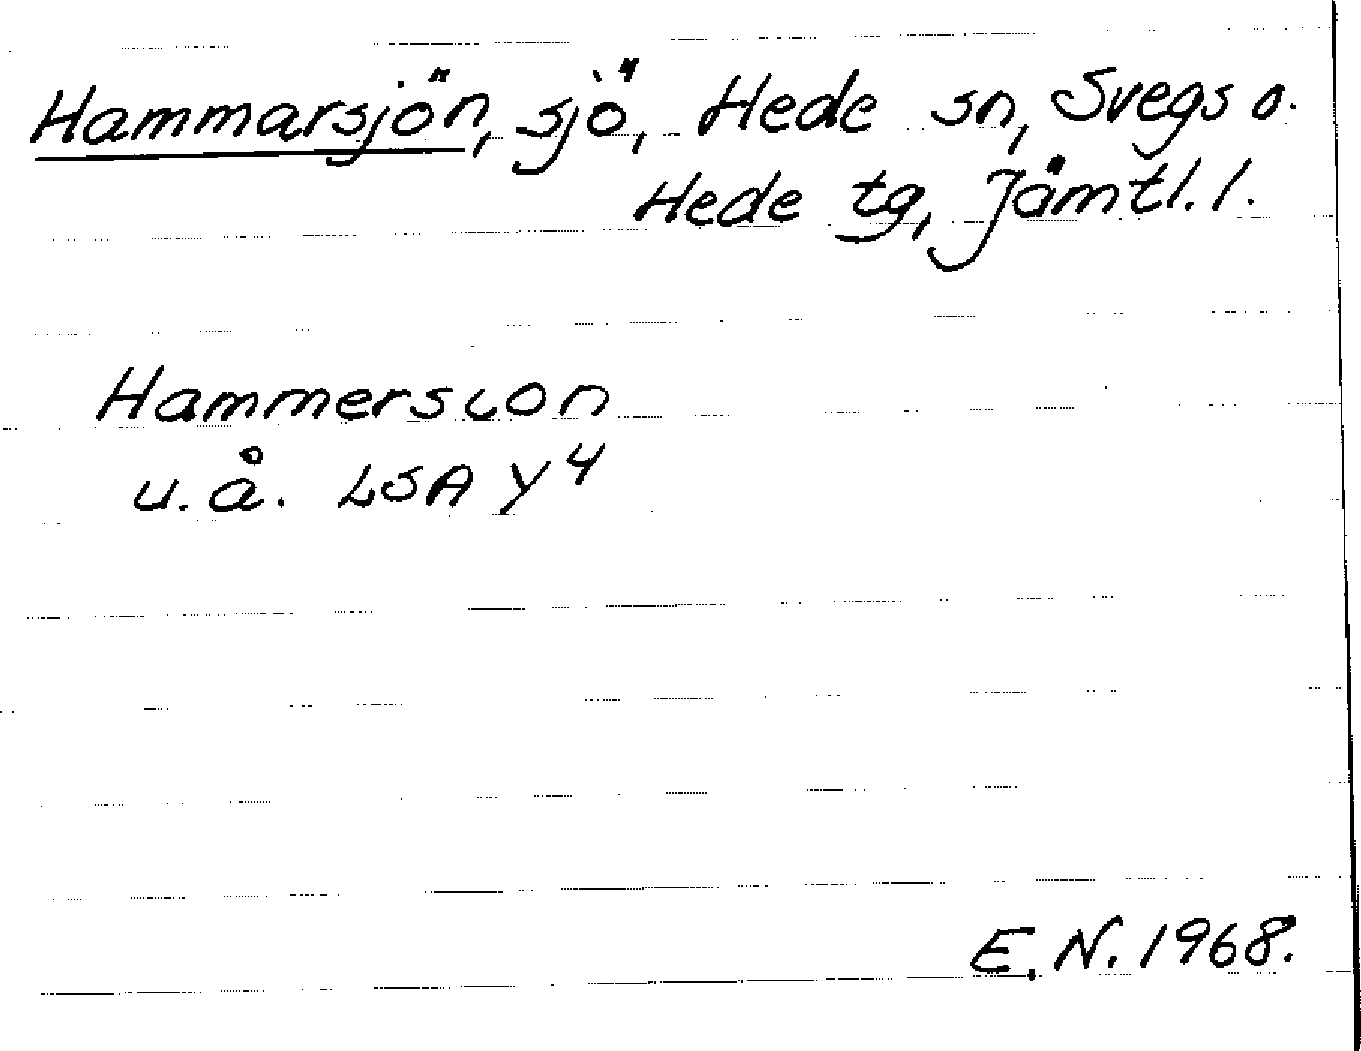 Hammarsjön, sjö, Hede sn, Svegs o.
Hede tg, Jämtl. l.
Hammersion
u. å. LSA Y4
E. N. 1968.